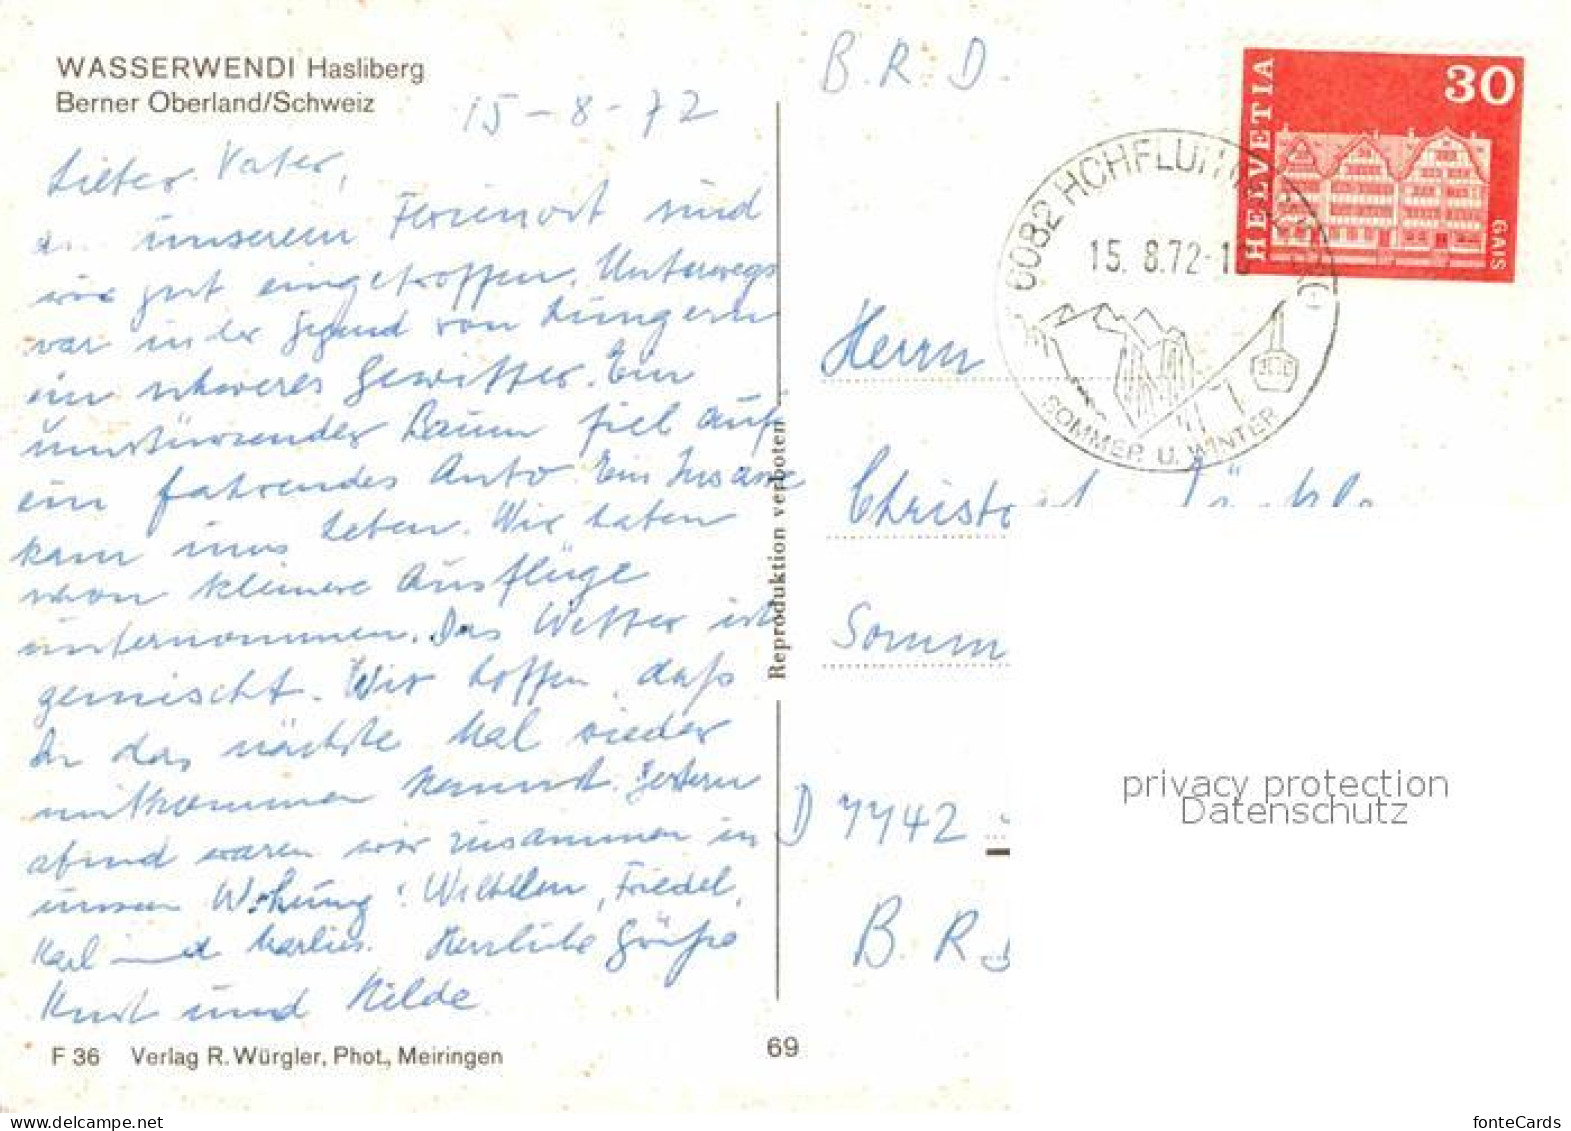 WASSERWENDI Hasliberg
Berner Oberland/Schweiz
15-8-72
Lieber Vater,
in unserem Ferienort sind
wir gut eingetroffen. Unterwegs
war in der Gegend von Lungern
ein schweres Gewitter. Ein
umstürzender Baum fiel auf
ein fahrendes Auto. Ein Insasse
kam ums Leben. Wir haben
schon kleinere Ausflüge
unternommen. Das Wetter ist
gemischt. Wir hoffen, daß
Du das nächste Mal wieder
mitkommen kannst. Gestern
abend waren wir zusammen in
unserer Wohnung: Wilhelm, Friedel,
Karl und Marlies. Herzliche Grüße
Kurt und Hilde
F 36 Verlag R. Würgler, Phot., Meiringen
69
Reproduktion verboten
B.R.D.
HELVETIA
30
GAIS
6082 HOHFLUH
15.8.72-1
SOMMER U. WINTER
Herrn
Christo
Somm
D 7742
B.R.D
privacy protection
Datenschutz
fonteCards